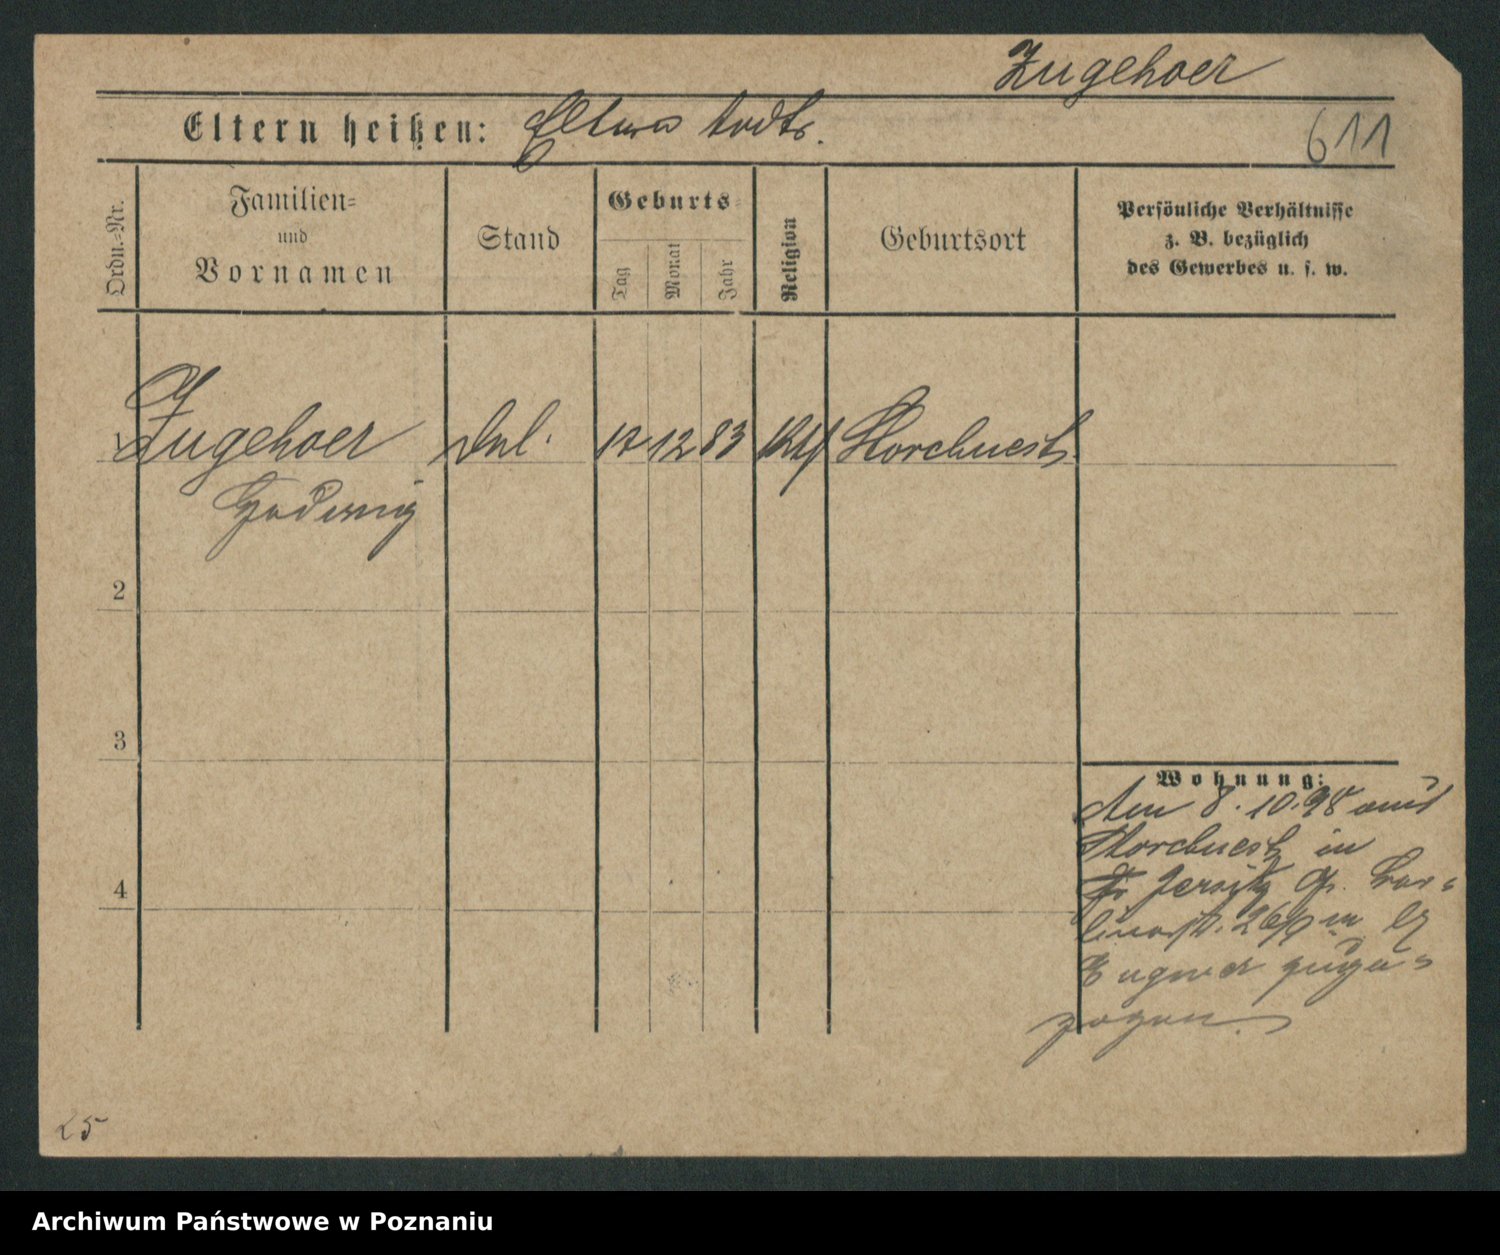 Zugehoer
Eltern heißen: Eltern todt.
611
Ordn.=Nr.
Familien=
und
Vornamen
Stand
Geburts=
Tag
Monat
Jahr
Religion
Geburtsort
Persönliche Verhältnisse
z. B. bezüglich
des Gewerbes u. s. w.
1 Zugehoer
Hedwig
led.
17 12 83
kth
Storchnest
2
3
4
Wohnung:
Am 8.10.98 aus
Storchnest in
Jersitz Gr. Ber=
linerstr. 26
zuge=
zogen.
25
Archiwum Państwowe w Poznaniu